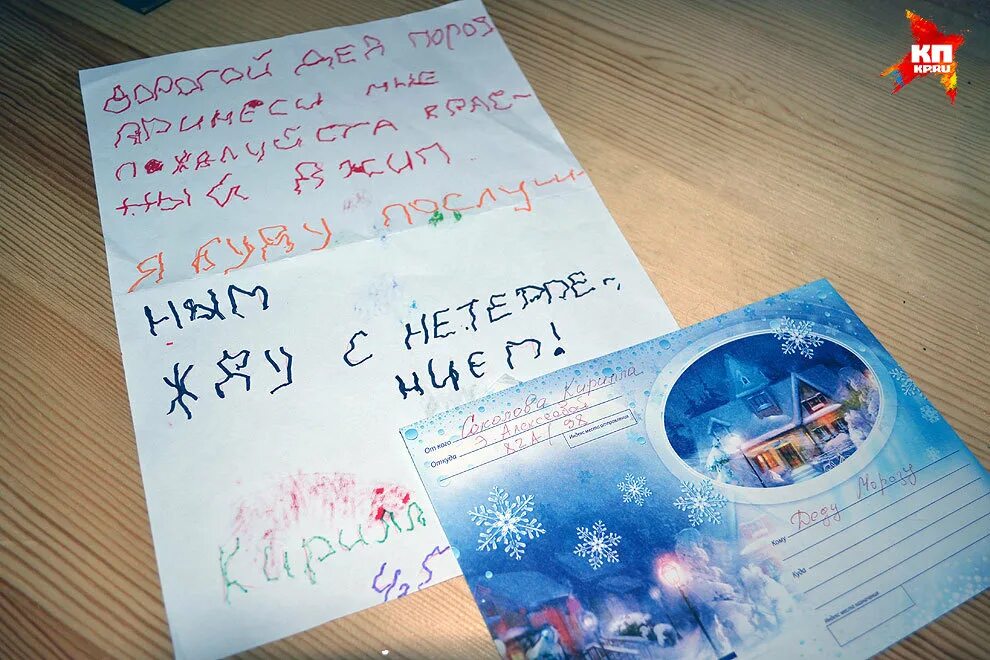 ДОРОГОЙ ДЕД ПОРОЗ
ПРИНЕСИ МНЕ
ПОЖАЛУЙСТА КРАС-
НЫЙ ДЖИП
Я БУДУ ПОСЛУШ-
НЫМ
ЖДУ С НЕТЕРПЕ-
НИЕМ!
Кирилл
4,5
От кого Соколова Кирилла
Откуда Э. Алексеевой
82А / 98
Индекс места отправления
Кому Деду Морозу
Куда
Индекс места назначения
КП
KP.RU